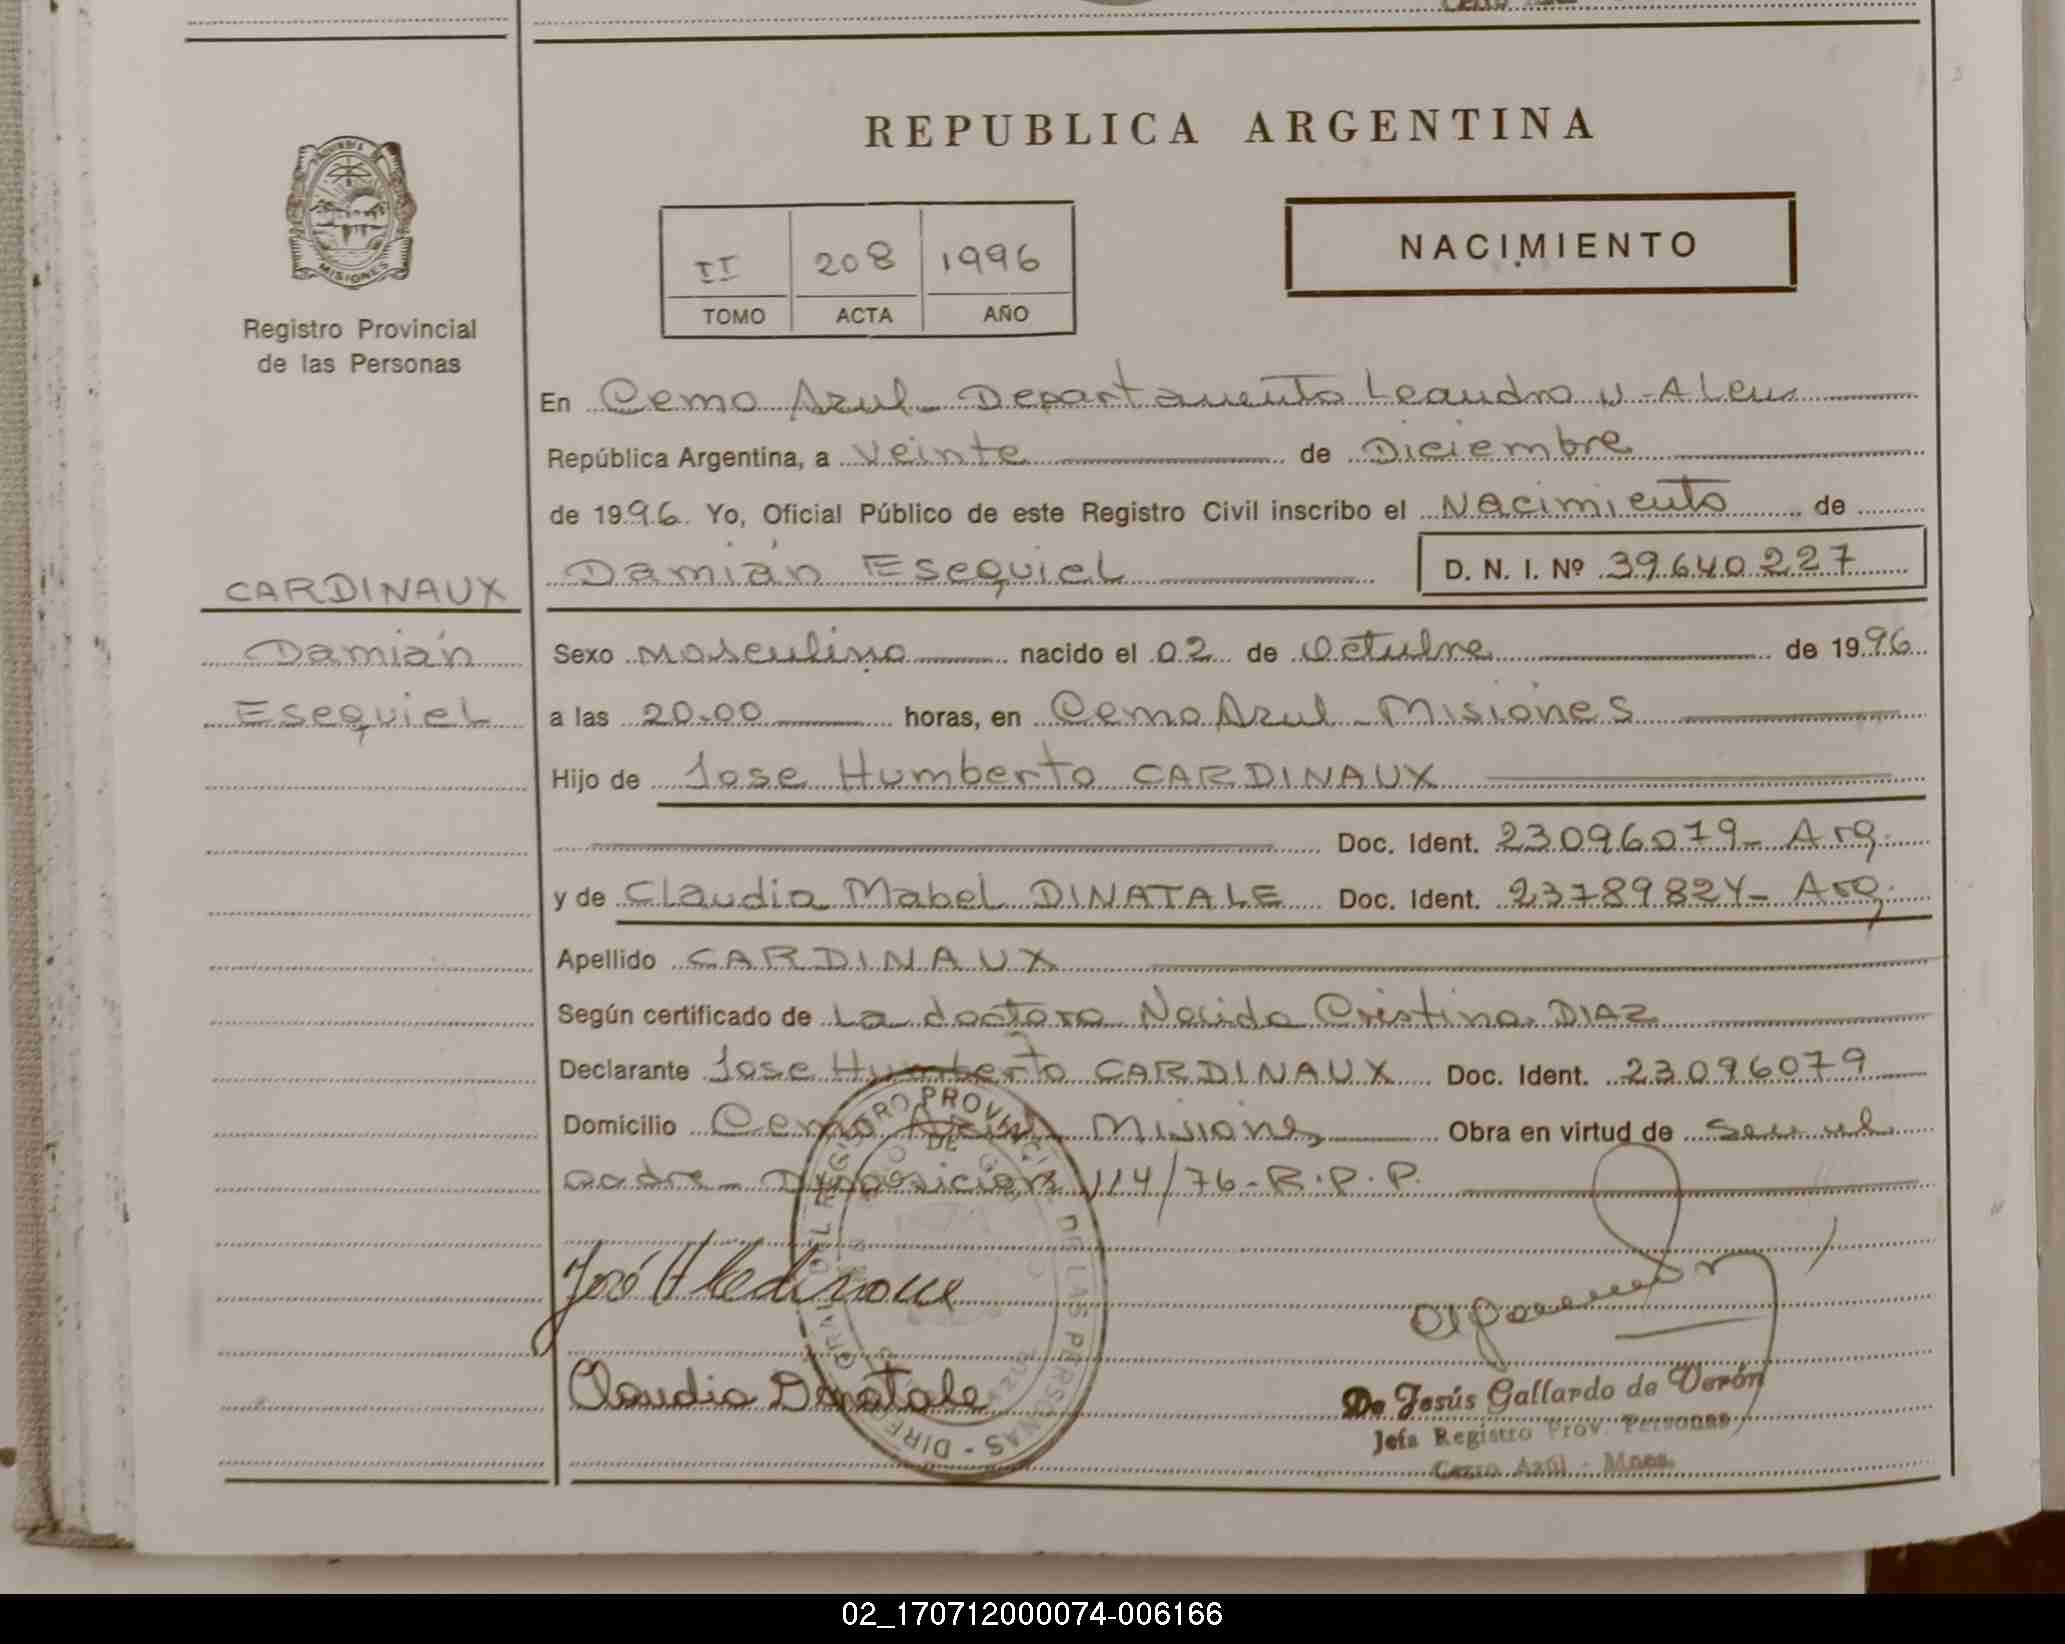 REPUBLICA ARGENTINA
PROVINCIA DE
MISIONES
Registro Provincial
de las Personas
II 208 1996
TOMO ACTA AÑO
NACIMIENTO
En Cerro Azul - Departamento Leandro N. Alem
República Argentina, a veinte de Diciembre
de 1996. Yo, Oficial Público de este Registro Civil inscribo el Nacimiento de
Damián Esequiel D. N. I. Nº 39.640.227
CARDINAUX
Damián
Esequiel
Sexo masculino nacido el 02 de octubre de 1996
a las 20.00 horas, en Cerro Azul - Misiones
Hijo de Jose Humberto CARDINAUX
Doc. Ident. 23096079- Arg.
y de Claudia Mabel DINATALE Doc. Ident. 23789824- Arg.
Apellido CARDINAUX
Según certificado de La doctora Cristina DIAZ
Declarante Jose Humberto CARDINAUX Doc. Ident. 23096079
Domicilio Cerro Azul Misiones Obra en virtud de ser el
padre - Disposición 114/76-R.P.P.
José H Cardinaux
Claudia Dinatale
REGISTRO PROVINCIAL DE LAS PERSONAS - DIRE
De Jesús Gallardo de Verón
Jefa Registro Prov. Personas
Cerro Azul - Mnes.
02_170712000074-006166